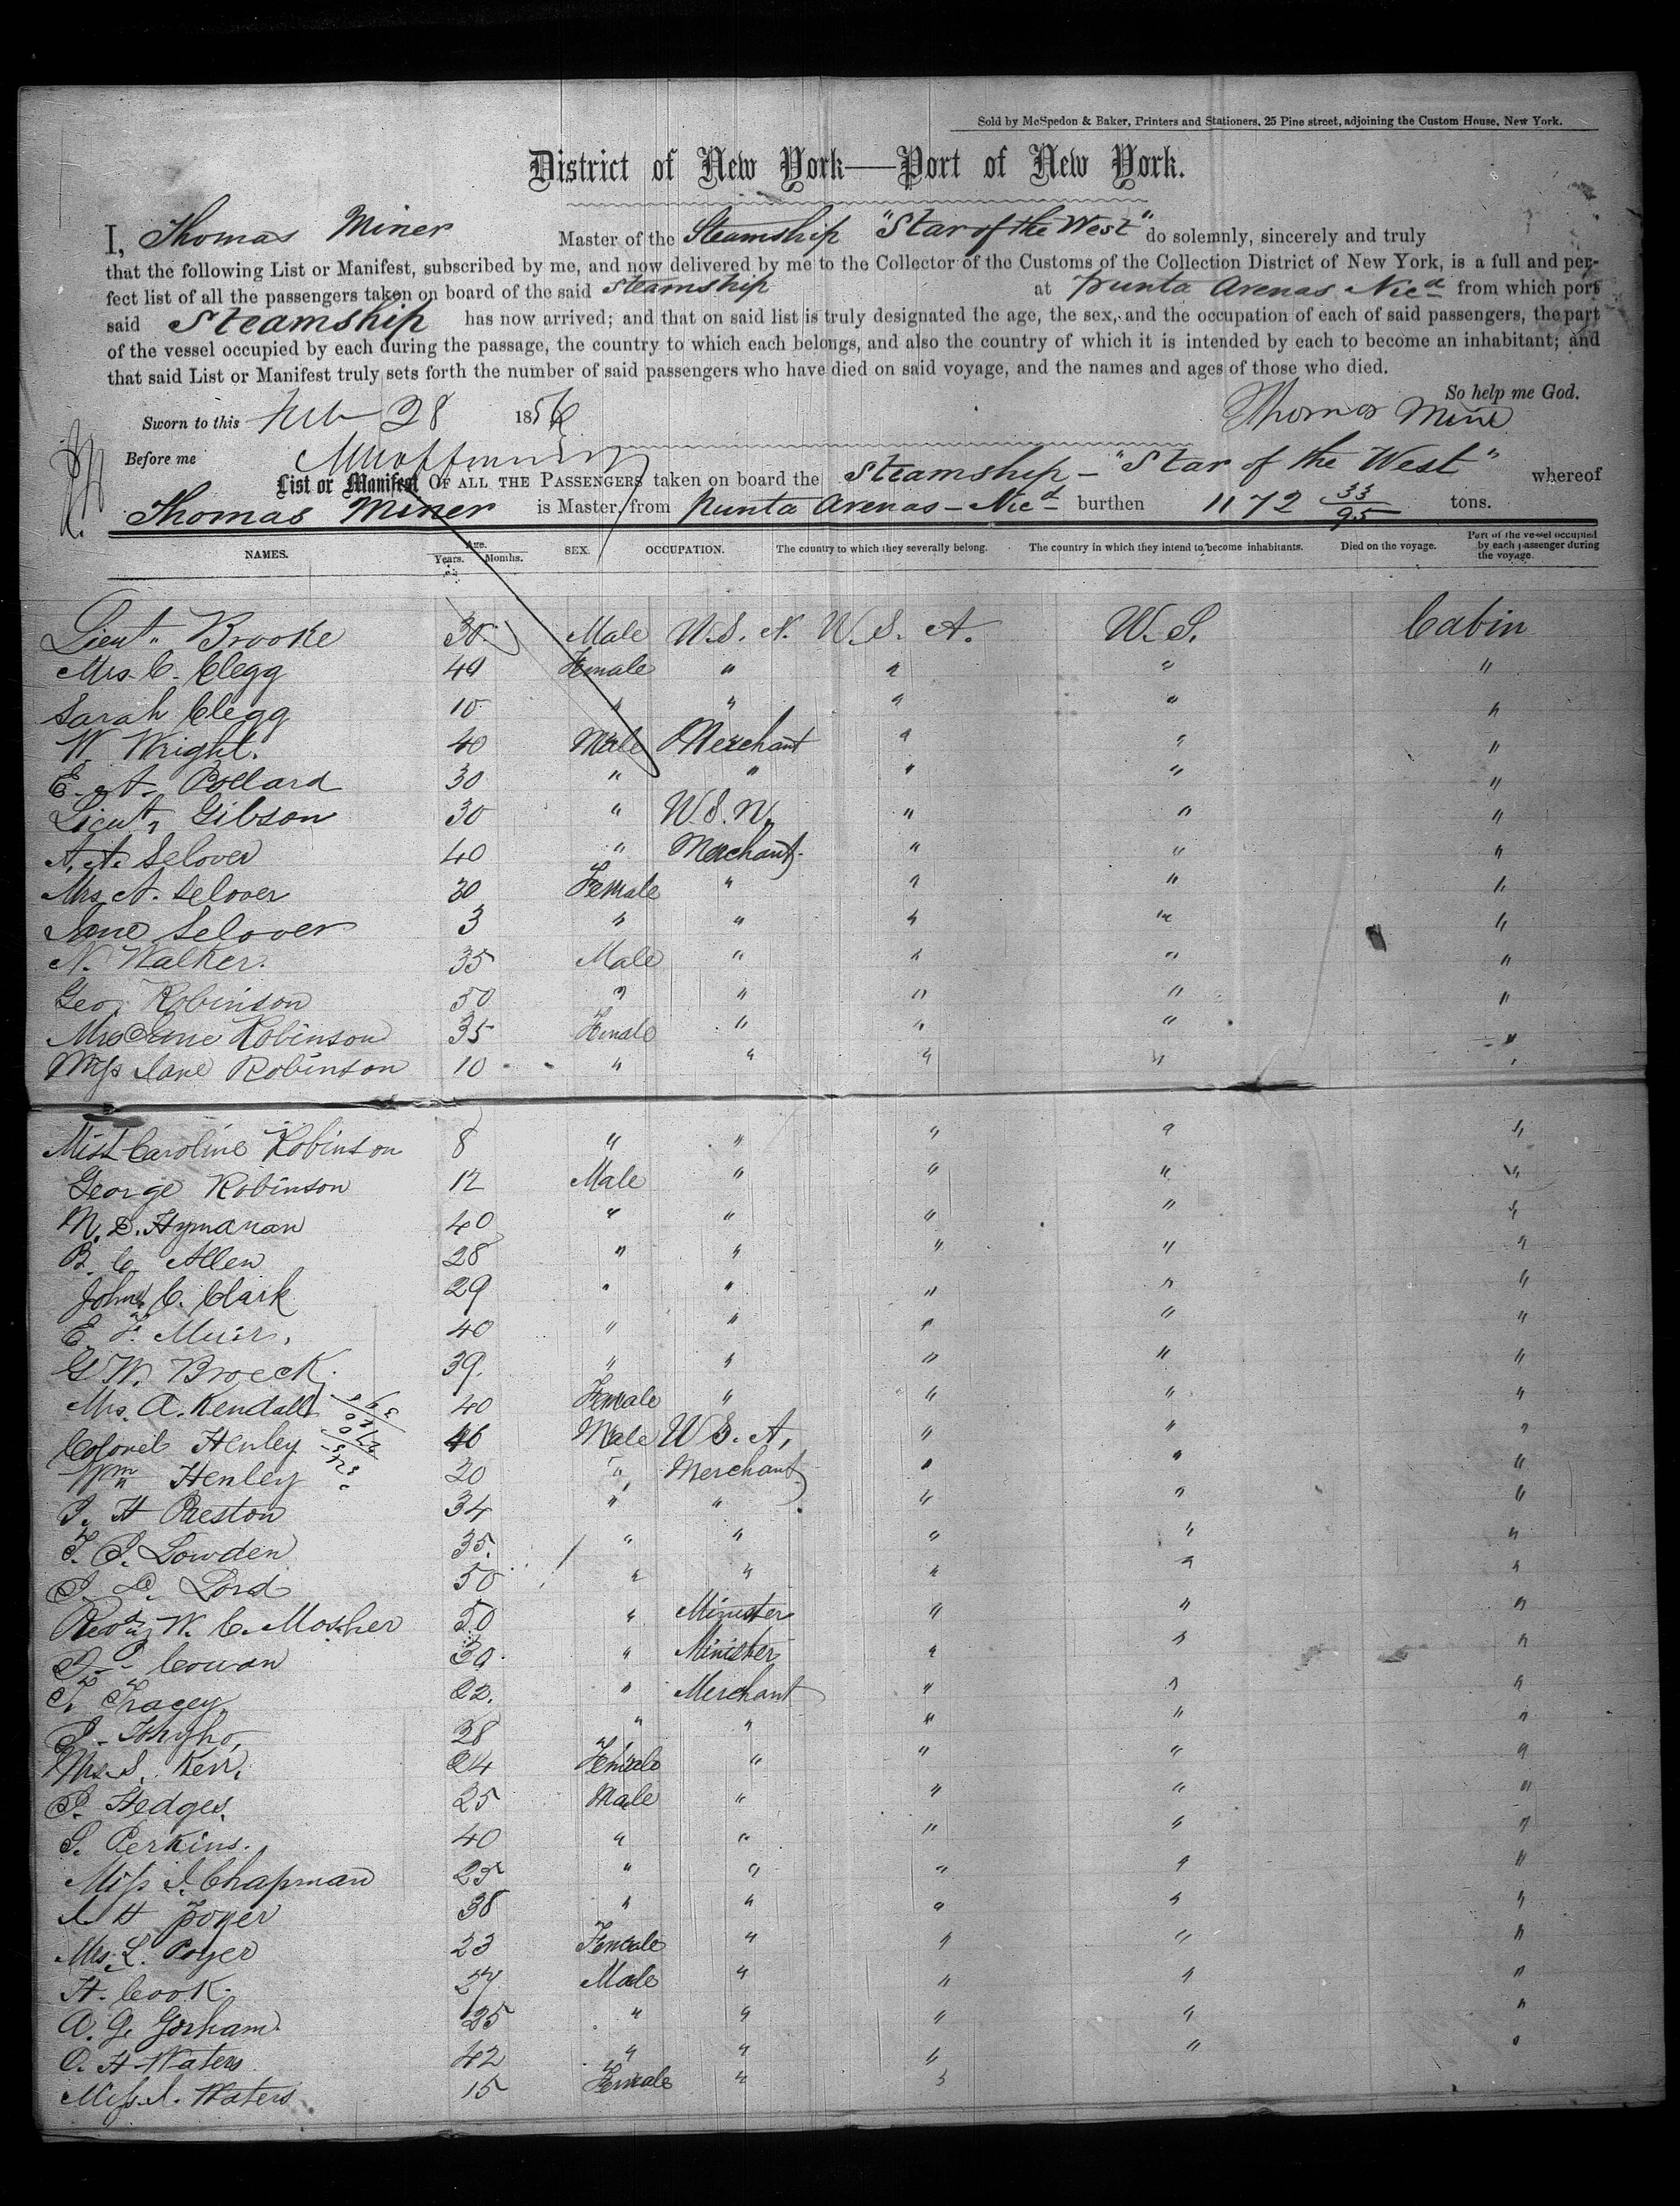 Sold by McSpedon & Baker, Printers and Stationers, 25 Pine street, adjoining the Custom House, New York.
District of New York—Port of New York.
I, Thomas Miner Master of the Steamship "Star of the West" do solemnly, sincerely and truly
that the following List or Manifest, subscribed by me, and now delivered by me to the Collector of the Customs of the Collection District of New York, is a full and per-
fect list of all the passengers taken on board of the said Steamship at Punta Arenas Nic from which port
said Steamship has now arrived; and that on said list is truly designated the age, the sex, and the occupation of each of said passengers, the part
of the vessel occupied by each during the passage, the country to which each belongs, and also the country of which it is intended by each to become an inhabitant; and
that said List or Manifest truly sets forth the number of said passengers who have died on said voyage, and the names and ages of those who died.
So help me God.
Sworn to this Feb 28 1856 Thomas Miner
Before me
List or Manifest OF ALL THE PASSENGERS taken on board the Steamship - "Star of the West" whereof
Thomas Miner is Master, from Punta Arenas - Nic burthen 1172 33/95 tons.
NAMES. Age. Years. Months. SEX. OCCUPATION. The country to which they severally belong. The country in which they intend to become inhabitants. Died on the voyage. Part of the vessel occupied by each passenger during the voyage.
Lieut. Brooke 30 Male U.S.N. U.S.A. U.S. Cabin
Mrs. C. Clegg 40 Female " " " "
Sarah Clegg 10 " " " " "
W. Wright. 40 Male Merchant " " "
E. A. Pollard 30 " " " " "
Lieut. Gibson 30 " U.S.N. " " "
A. A. Selover 40 " Merchant " " "
Mrs. A. Selover 30 Female " " " "
Jane Selover 3 " " " " "
N. Walker. 35 Male " " " "
Geo. Robinson 50 " " " " "
Mrs Jane Robinson 35 Female " " " "
Miss Jane Robinson 10 " " " " "
Miss Caroline Robinson 8 " " " " "
George Robinson 12 Male " " " "
M. D. Hymanan 40 " " " " "
B. C. Allen 28 " " " " "
John C. Clark 29 " " " " "
E. F. Muir. 40 " " " " "
G. W. Broeck. 39. " " " " "
Mrs. A. Kendall 40 Female " " " "
Colonel Henley 46 Male U.S.A. " " "
Wm Henley 20 " Merchant " " "
J. H Preston 34 " " " " "
T. J. Lowden 35. " " " " "
Lord 50 " " " " "
Revd W. C. Mosher 50 " Minister " " "
Cowan 30 " Minister " " "
T. Tracey 22. " Merchant " " "
28 " " " " "
Mrs. S. Kerr. 24 Female " " " "
J. Hedges. 25 Male " " " "
S. Perkins. 40 " " " " "
Miss J. Chapman 25 " " " " "
H Poyer 38 " " " " "
Mrs. L. Poyer 23 Female " " " "
H. Cook. 27 Male " " " "
A. G. Gorham 25 " " " " "
O. H Waters 42 " " " " "
Miss J. Waters 15 Female " "